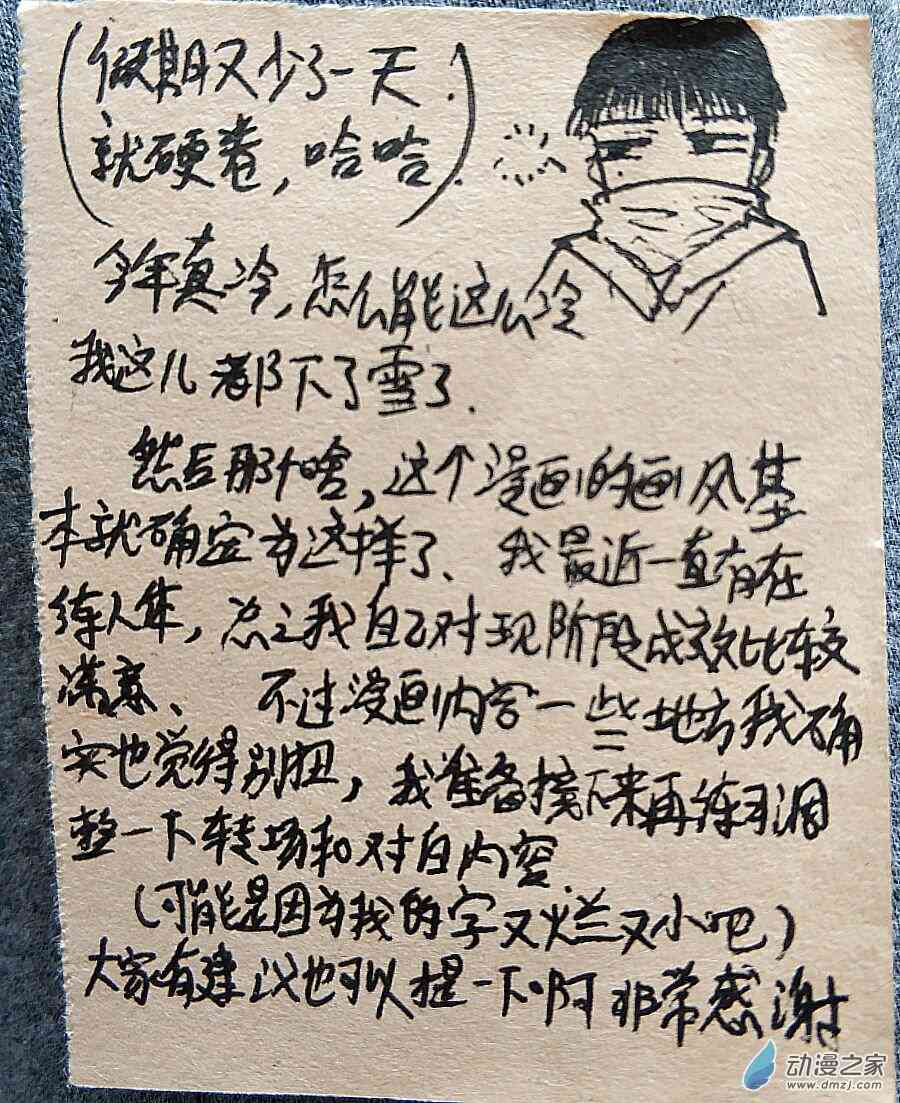 (假期又少了一天.
就硬卷,哈哈.)
今年真冷,怎么能这么冷
我这儿都下了雪了.
然后那个啥,这个漫画的画风基
本就确定为这样了、我最近一直有在
练人体,总之我自己对现阶段成效比较
满意、不过漫画内容一些地方我确
实也觉得别扭,我准备接下来再练习调
整一下转场和对白内容.
(可能是因为我的字又烂又小吧)
大家有建议也可以提一下啊非常感谢
动漫之家
www.dmzj.com